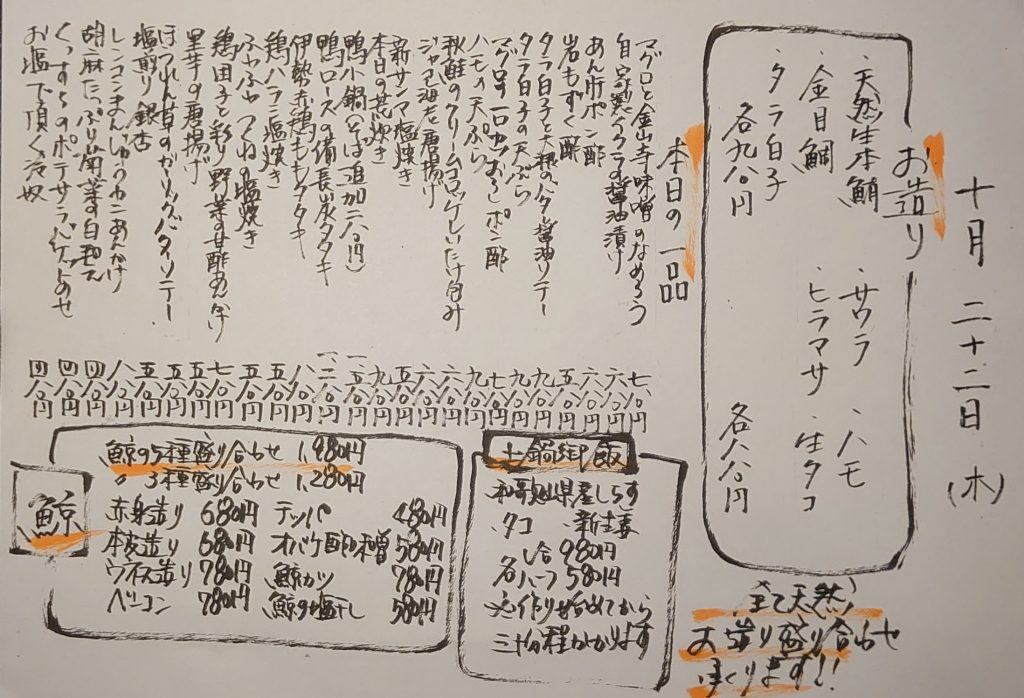 十月二十二日(木)
お造り
・天然生本鮪
・金目鯛
・タラ白子
各九八〇円
・サワラ ・ハモ
・ヒラマサ ・生タコ
各八八〇円
全て天然
お造り盛り合わせ
承ります!!
本日の一品
マグロと金山寺味噌のなめろう 七八〇円
自家製イクラの醤油漬け 六八〇円
あん肝ポン酢 六八〇円
岩もずく酢 五八〇円
タラ白子と大根のバター醤油ソテー 九八〇円
タラ白子の天ぷら 九八〇円
マグロの一口カツおろしポン酢 七八〇円
ハモの天ぷら 九八〇円
秋鮭のクリームコロッケしいたけ包み 六八〇円
ジャコ海老唐揚げ 六八〇円
新サンマ塩焼き 五八〇円
本日の煮炊き 九八〇円
鴨小鍋(そば追加二八〇円) 一、五八〇円
鴨ロースの備長炭タタキ 一、二八〇円
伊勢赤鶏ももタタキ 八八〇円
鶏ハラミ塩焼き 五八〇円
ふわふわつくねの塩焼き 五八〇円
鶏団子と彩り野菜の甘酢あんかけ 七八〇円
里芋の唐揚げ 五八〇円
ほうれん草のガーリックバターソテー 五八〇円
塩煎り銀杏 五八〇円
レンコンまんじゅうカニあんかけ 八八〇円
胡麻たっぷり菊菜の白和え 四八〇円
くんせいのポテサラバゲットのせ 四八〇円
お塩で頂く冷奴 四八〇円
土鍋御飯
和歌山県産しらす
タコ 新生姜
一合 980円
各ハーフ 580円
※作り始めてから
三十分程かかります
鯨
鯨の5種盛り合わせ 1,980円
〃 3種盛り合わせ 1,280円
赤身造り 680円 テッパ 480円
本皮造り 680円 オバケ酢味噌 580円
ウネス造り 780円 鯨カツ 780円
ベーコン 780円 鯨の塩干し 580円